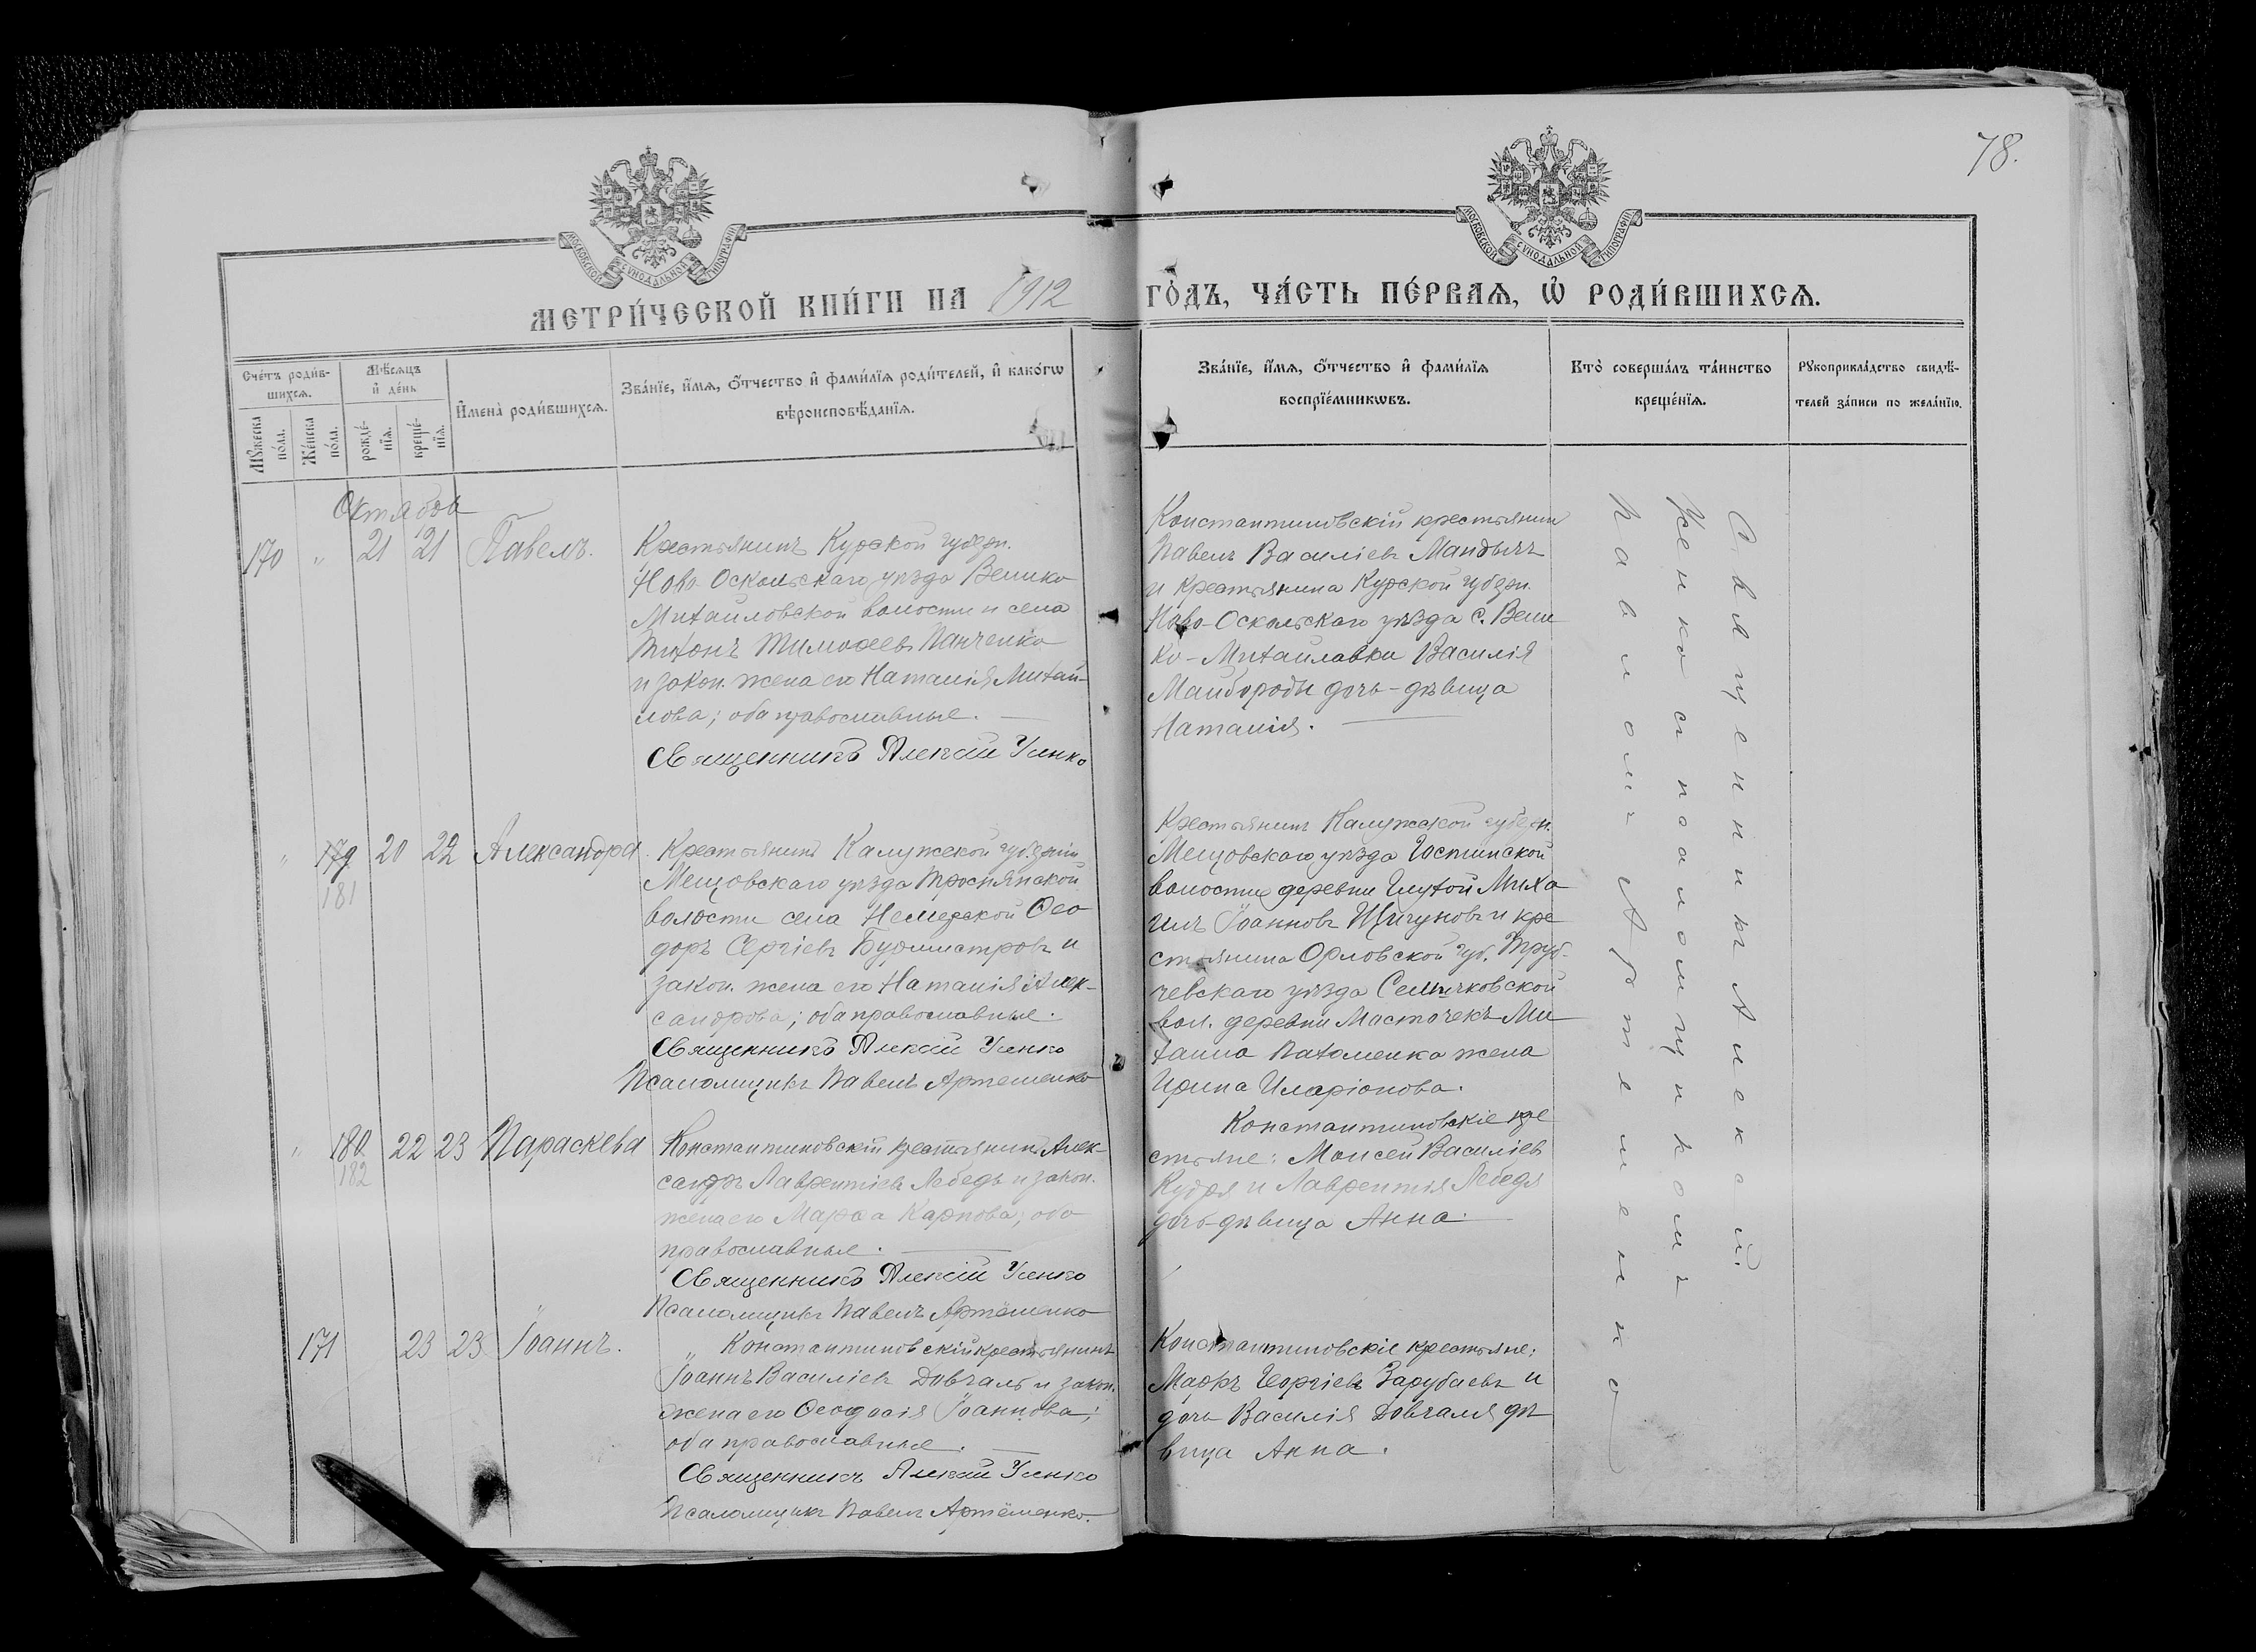 78.
МОСКОВСКОЙ СѴНОДАЛЬНОЙ ТИПОГРАФІИ
МОСКОВСКОЙ СѴНОДАЛЬНОЙ ТИПОГРАФІИ
МЕТРИ́ЧЕСКОЙ КНИ́ГИ НА 1912 ГО́ДЪ, ЧА́СТЬ ПЕ́РВАѦ, Ѡ҆ РОДИ́ВШИХСѦ.
Сче́тъ роди́в-
шихсѧ.
Мꙋжеска
по́ла.
Же́нска
по́ла.
Мѣ́сѧцъ
и҆ де́нь
рожде́-
нїѧ.
креще́-
нїѧ.
И҆мена̀ роди́вшихсѧ.
Зва́нїе, и҆́мѧ, ѻ҆́тчество и҆ фами́лїѧ роди́телей, и҆ како́гѡ
вѣроисповѣ́данїѧ.
Зва́нїе, и҆́мѧ, ѻ҆́тчество и҆ фами́лїѧ
воспрїе́мникѡвъ.
Кто̀ соверша́лъ та́инство
креще́нїѧ.
Рꙋкоприкла́дство свидѣ́-
телей за́писи по жела́нїю.
Октябрь
170 " 21 21 Павелъ.
Крестьянинъ Курской губерн.
Ново-Оскольскаго уѣзда Велико
Михайловской волости и села
Тихонъ Тимоѳеевъ Панченко
и закон. жена его Наталія Михай-
лова; оба православные.
Священникъ Алексій Усенко
Константиновскій крестьянин
Павелъ Василіевъ Мандычъ
и крестьянина Курской губерн.
Ново-Оскольскаго уѣзда с. Вели
ко-Михайловки Василія
Майбороды дочь-дѣвица
Наталія.
" 179 20 22 Александра.
181
Крестьянинъ Калужской губерніи
Мещовскаго уѣзда
волости села Ѳео
доръ Сергіевъ Бурмистровъ и
закон. жена его Наталія Алек-
сандрова; оба православные.
Священникъ Алексій Усенко
Псаломщикъ Павелъ Артеменко
Крестьянинъ Калужской губерн.
Мещовскаго уѣзда
волости деревни Глухой Миха
илъ Іоанновъ и кре
стьянина Орловской губ. Труб-
чевскаго уѣзда Семячковской
вол. деревни Ми
хаила жена
Ирина Иларіонова.
" 180 22 23 Параскева
182
Константиновскій крестьянинъ Алек-
сандръ Лаврентіевъ Лебедь и закон.
жена его Марѳа Карпова; оба
православные.
Священникъ Алексій Усенко
Псаломщикъ Павелъ Артеменко
Константиновскіе кре
стьяне: Моисей Василіевъ
Кудря и Лаврентія Лебедя
дочь-дѣвица Анна.
171 23 23 Іоаннъ.
" Константиновскій крестьянинъ
Іоаннъ Василіевъ Довгаль и закон.
жена его Ѳеодосія Іоаннова;
оба православные.
Священникъ Алексій Усенко
Псаломщикъ Павелъ Артёменко.
Константиновскіе крестьяне:
Маркъ Георгіевъ Зарубаевъ и
дочь Василія Довгаля дѣ
вица Анна.
Священникъ Алексій
Усенко съ псаломщикомъ
Павломъ Артеменко